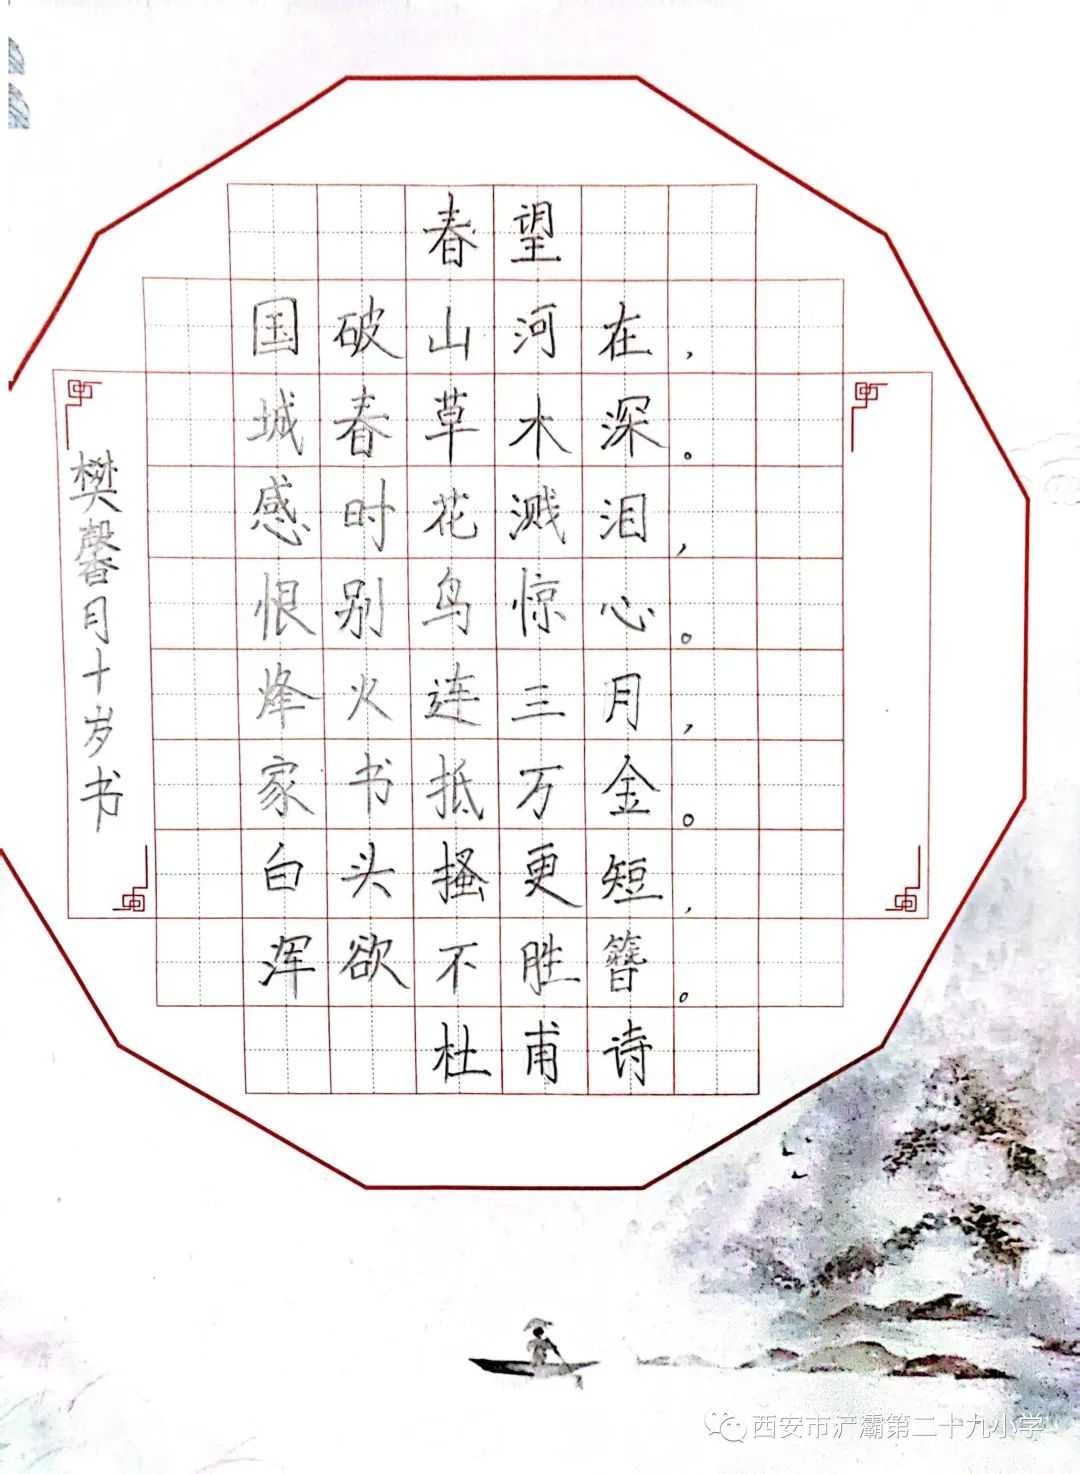 春望
国破山河在，
城春草木深。
感时花溅泪，
恨别鸟惊心。
烽火连三月，
家书抵万金。
白头搔更短，
浑欲不胜簪。
杜甫诗
樊馨月十岁书
西安市浐灞第二十九小学